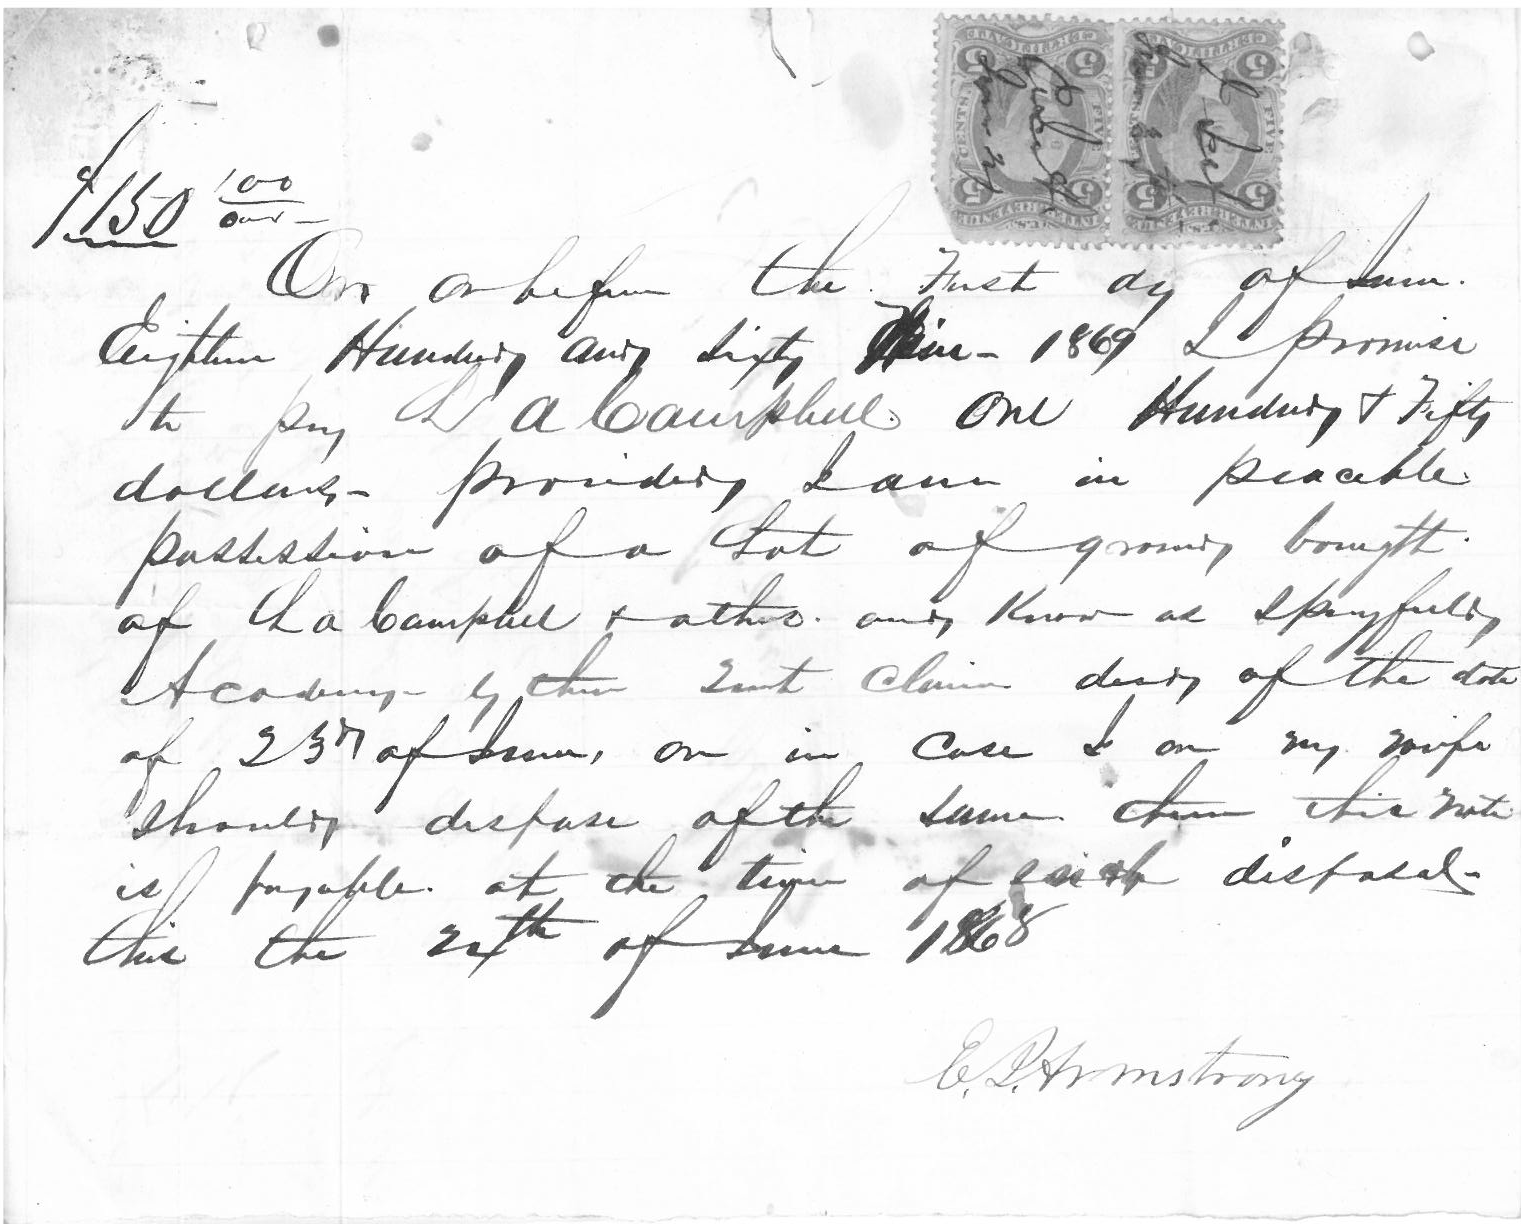 CERTIFICATE CERTIFICATE
5 5 5 5
CENTS FIVE FIVE
5 5 5 5
INTER. REVENUE INTER. REVENUE
$150 100
On or before the First day of June.
Eighteen Hundred and sixty Nine - 1869 I promise
to pay L A Campbell. One Hundred & Fifty
dollars - providing I am in peacable
possession of a Lot of ground bougth.
of L A Campbell & others. and Know as Springfield
Academy - by their Quit claim deed of the date
of 23rd of June, or in case I or my wife
should dispose of the same then this Note
is payable. at the time of such disposal -
this the of June 1868
E. P. Armstrong